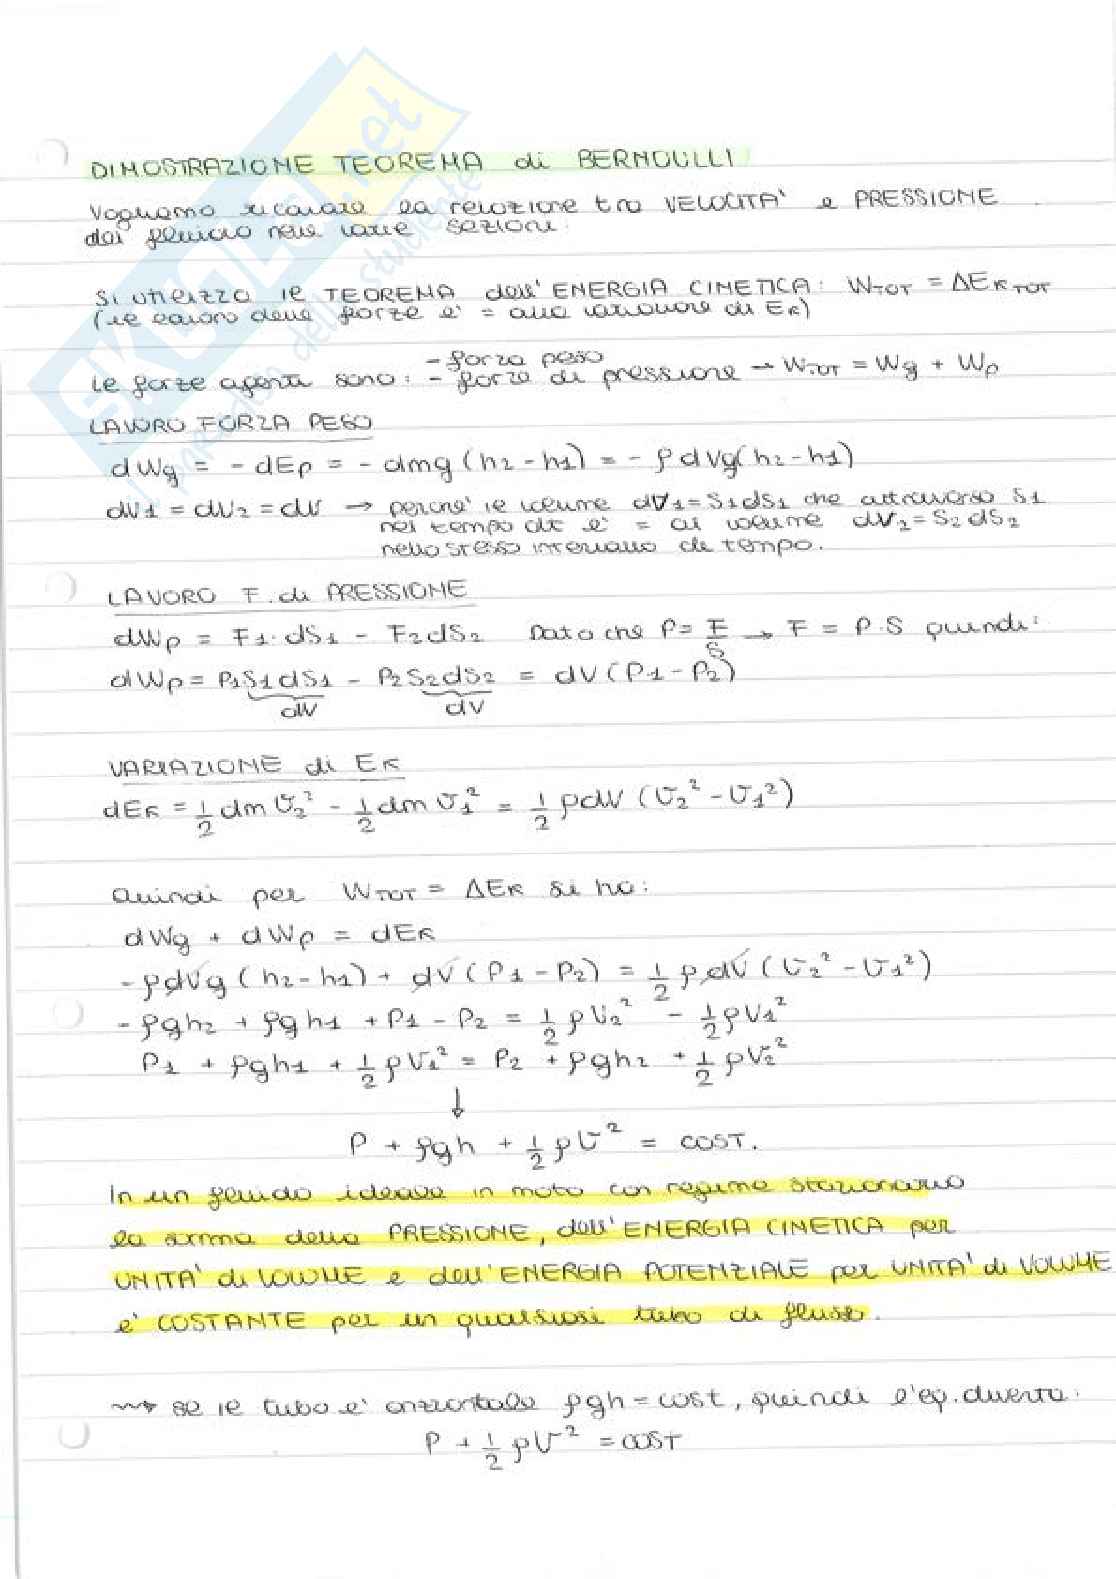 DIMOSTRAZIONE TEOREMA di BERNOULLI
Vogliamo ricavare la relazione tra VELOCITA' e PRESSIONE
del fluido nelle varie sezioni.
Si utilizza il TEOREMA dell'ENERGIA CINETICA: WTOT = ΔEK TOT
(il lavoro delle forze è = alla variazione di EK)
Le forze agenti sono: - forza peso
- forza di pressione → WTOT = Wg + Wp
LAVORO FORZA PESO
dWg = - dEp = - dmg (h2 - h1) = - ρdVg(h2 - h1)
dV1 = dV2 = dV → perché il volume dV1 = S1dS1 che attraverso S1
nel tempo dt è = al volume dV2 = S2 dS2
nello stesso intervallo di tempo.
LAVORO F. di PRESSIONE
dWp = F1 · dS1 - F2 dS2 Dato che P = F/S → F = P·S quindi:
dWp = P1S1dS1 - P2S2dS2 = dV (P1 - P2)
dV dV
VARIAZIONE di EK
dEK = 1/2 dm v2² - 1/2 dm v1² = 1/2 ρdV (v2² - v1²)
Quindi per WTOT = ΔEK si ha:
dWg + dWp = dEK
- ρdVg (h2 - h1) + dV (P1 - P2) = 1/2 ρdV (v2² - v1²)
- ρgh2 + ρgh1 + P1 - P2 = 1/2 ρv2² - 1/2 ρv1²
P1 + ρgh1 + 1/2 ρv1² = P2 + ρgh2 + 1/2 ρv2²
↓
P + ρgh + 1/2 ρv² = COST.
In un fluido ideale in moto con regime stazionario
la somma della PRESSIONE, dell'ENERGIA CINETICA per
UNITA' di VOLUME e dell'ENERGIA POTENZIALE per UNITA' di VOLUME
è COSTANTE per un qualsiasi tubo di flusso.
⇝ se il tubo è orizzontale ρgh = cost, quindi l'eq. diventa:
P + 1/2 ρv² = COST
SKUOLA.net
il paradiso dello studente